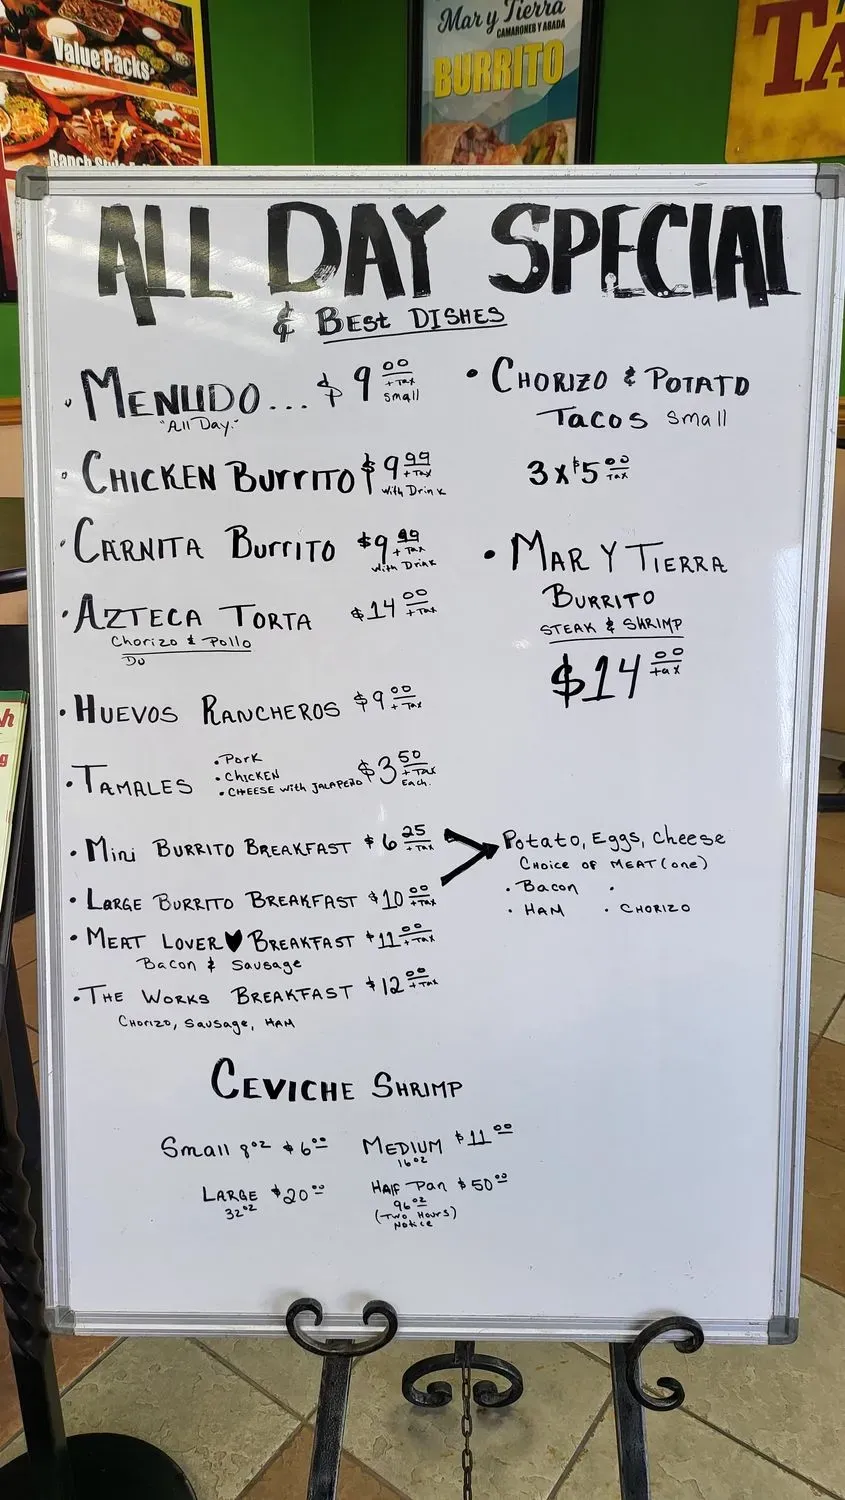 Value Packs
Ranch Style
Mar y Tierra
CAMARONES Y ASADA
BURRITO
TA
ALL DAY SPECIAL
& BEST DISHES
• MENUDO... $9.00 + Tax small
"All Day."
• CHICKEN BURRITO $9.99 + Tax with Drink
• CARNITA BURRITO $9.99 + Tax with Drink
• AZTECA TORTA $14.00 + Tax
Chorizo & Pollo
Do
• HUEVOS RANCHEROS $9.00 + Tax
• TAMALES • PORK • CHICKEN • CHEESE with JALAPEÑO $3.50 + Tax Each.
• Mini BURRITO BREAKFAST $6.25 + Tax
• LARGE BURRITO BREAKFAST $10.00 + Tax
• MEAT LOVER ♥ BREAKFAST $11.00 + Tax
Bacon & Sausage
• THE WORKS BREAKFAST $12.00 + Tax
CHORIZO, Sausage, HAM
• CHORIZO & POTATO
TACOS small
3 x $5.00 Tax
• MAR Y TIERRA
BURRITO
STEAK & SHRIMP
$14.00 + tax
Potato, Eggs, Cheese
CHOICE OF MEAT (one)
• Bacon •
• HAM • CHORIZO
CEVICHE SHRIMP
Small 8oz $6.00 MEDIUM 16oz $11.00
LARGE 32oz $20.00 HALF Pan $50.00
96oz
(TWO HOURS)
Notice